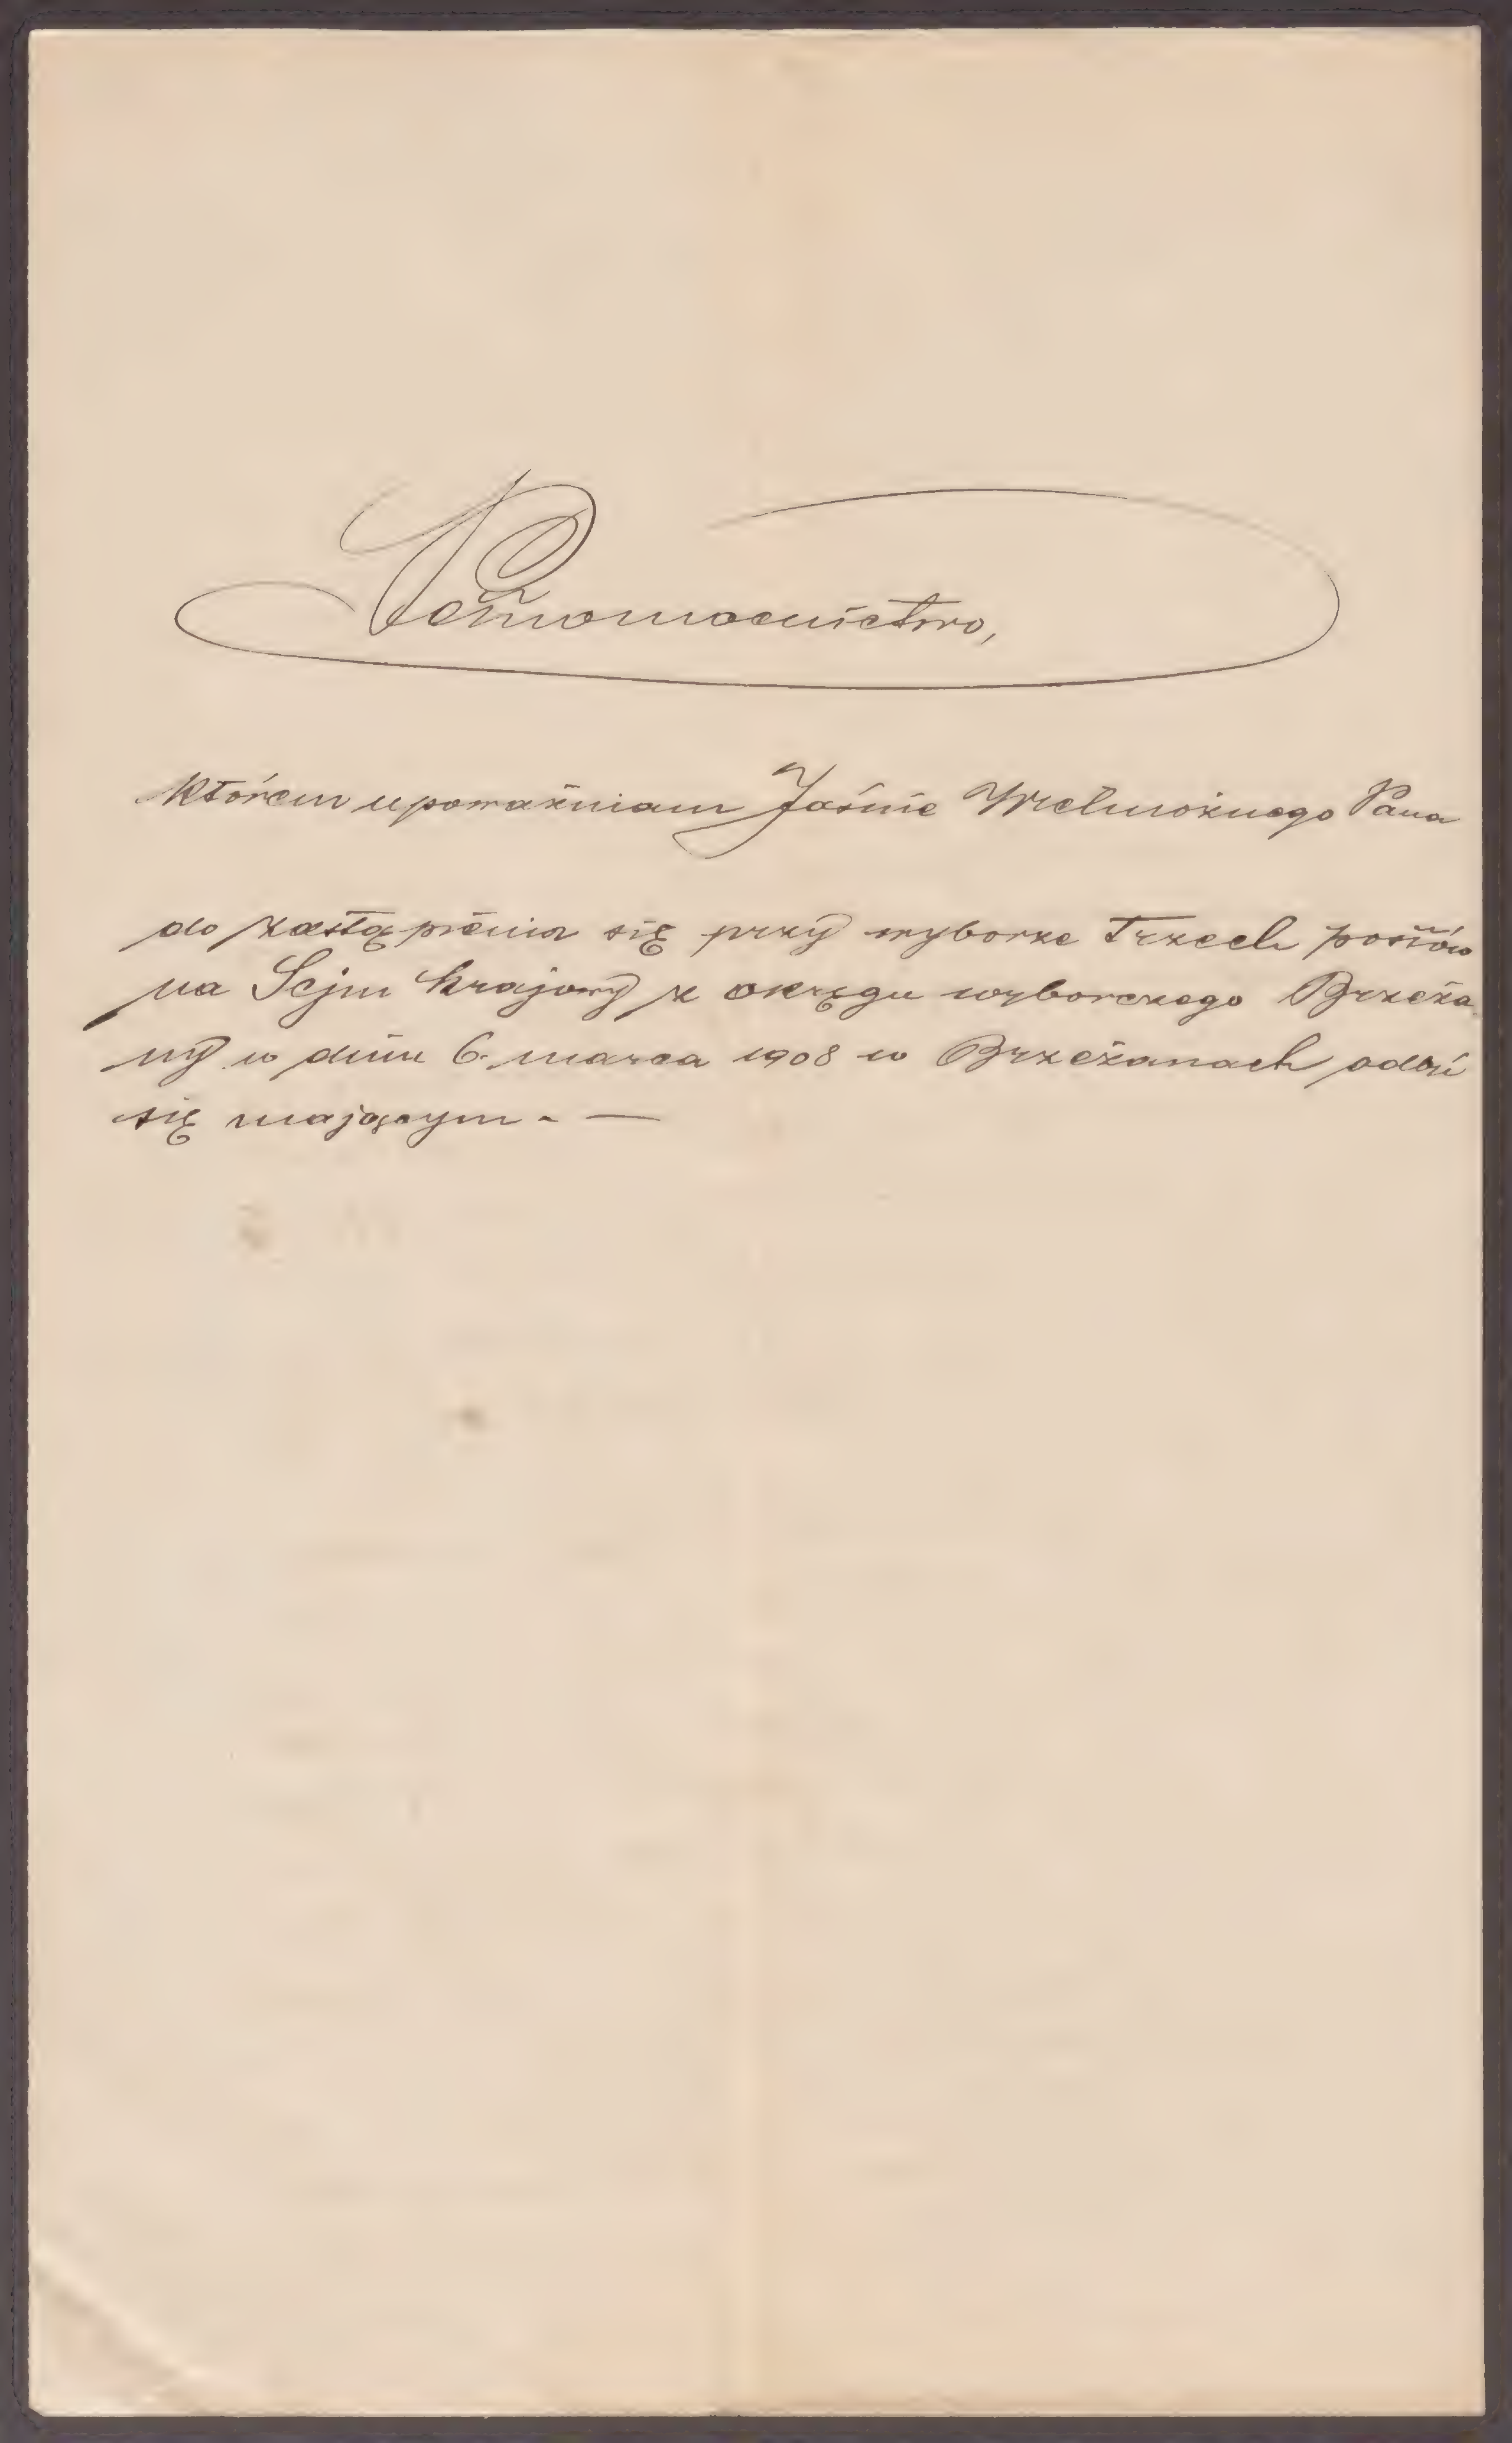 Pełnomocnictwo,
którem upoważniam Jaśnie Wielmożnego Pana
do zastąpienia się przy wyborze trzech posłów
na Sejm krajowy z okręgu wyborczego Brzeża-
ny w dniu 6. marca 1908 w Brzeżanach odbyć
się mającym. —